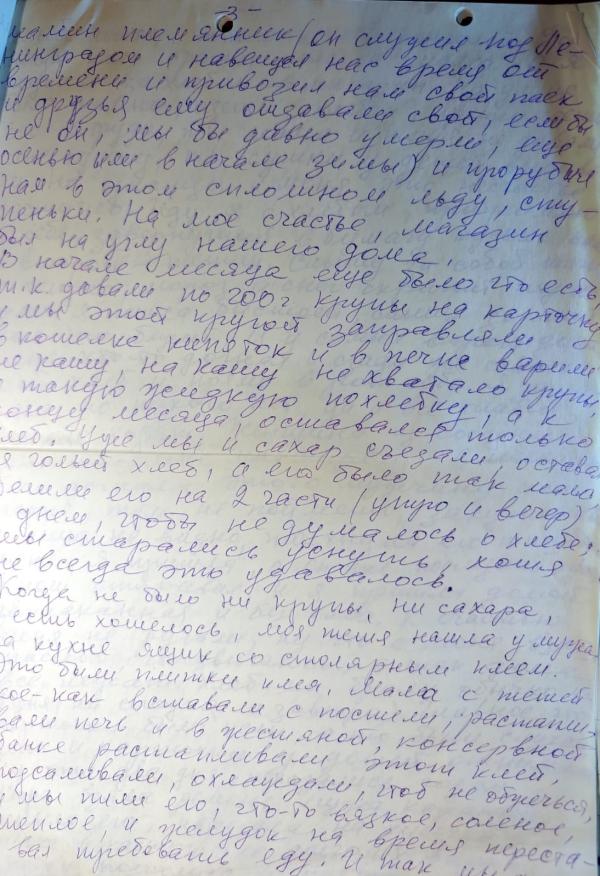 -3-
мамин племянник (он служил под Ле-
нинградом и навещал нас время от
времени и привозил нам свой паек
и друзья ему отдавали свой, если бы
не он, мы бы давно умерли, еще
осенью или в начале зимы) и прорубил
нам в этом сплошном льду, сту-
пеньки. На мое счастье, магазин
был на углу нашего дома.
В начале месяца еще было что есть,
т.к. давали по 200г крупы на карточку
и мы этой крупой заправляли
в кошелке кипяток и в печке варили
не кашу, на кашу не хватало крупы,
а такую жидкую похлебку, а к
концу месяца, оставался только
хлеб. Уже мы и сахар съедали, остава
ся голый хлеб, а его было так мало
делили его на 2 части (утро и вечер)
днем, чтобы не думалось о хлебе,
мы старались уснуть, хотя
не всегда это удавалось.
Когда не было ни крупы, ни сахара,
а есть хотелось, моя тетя нашла у мужа
на кухне ящик со столярным клеем.
Это были плитки клея. Мама с тетей
кое-как вставали с постели, растапли-
вали печь и в жестяной, консервной
банке растапливали этот клей,
подсаливали, охлаждали, чтоб не обжечься,
и мы пили его, что-то вязкое, соленое,
теплое, и желудок на время переста-
вал требовать еду. И так мы